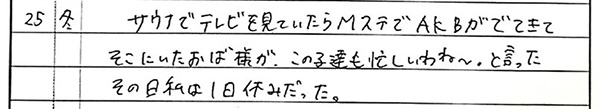 25 冬 サウナでテレビを見ていたらMステでAKBがでてきて
そこにいたおば様が、この子達も忙しいわね〜。と言った
その日私は1日休みだった。